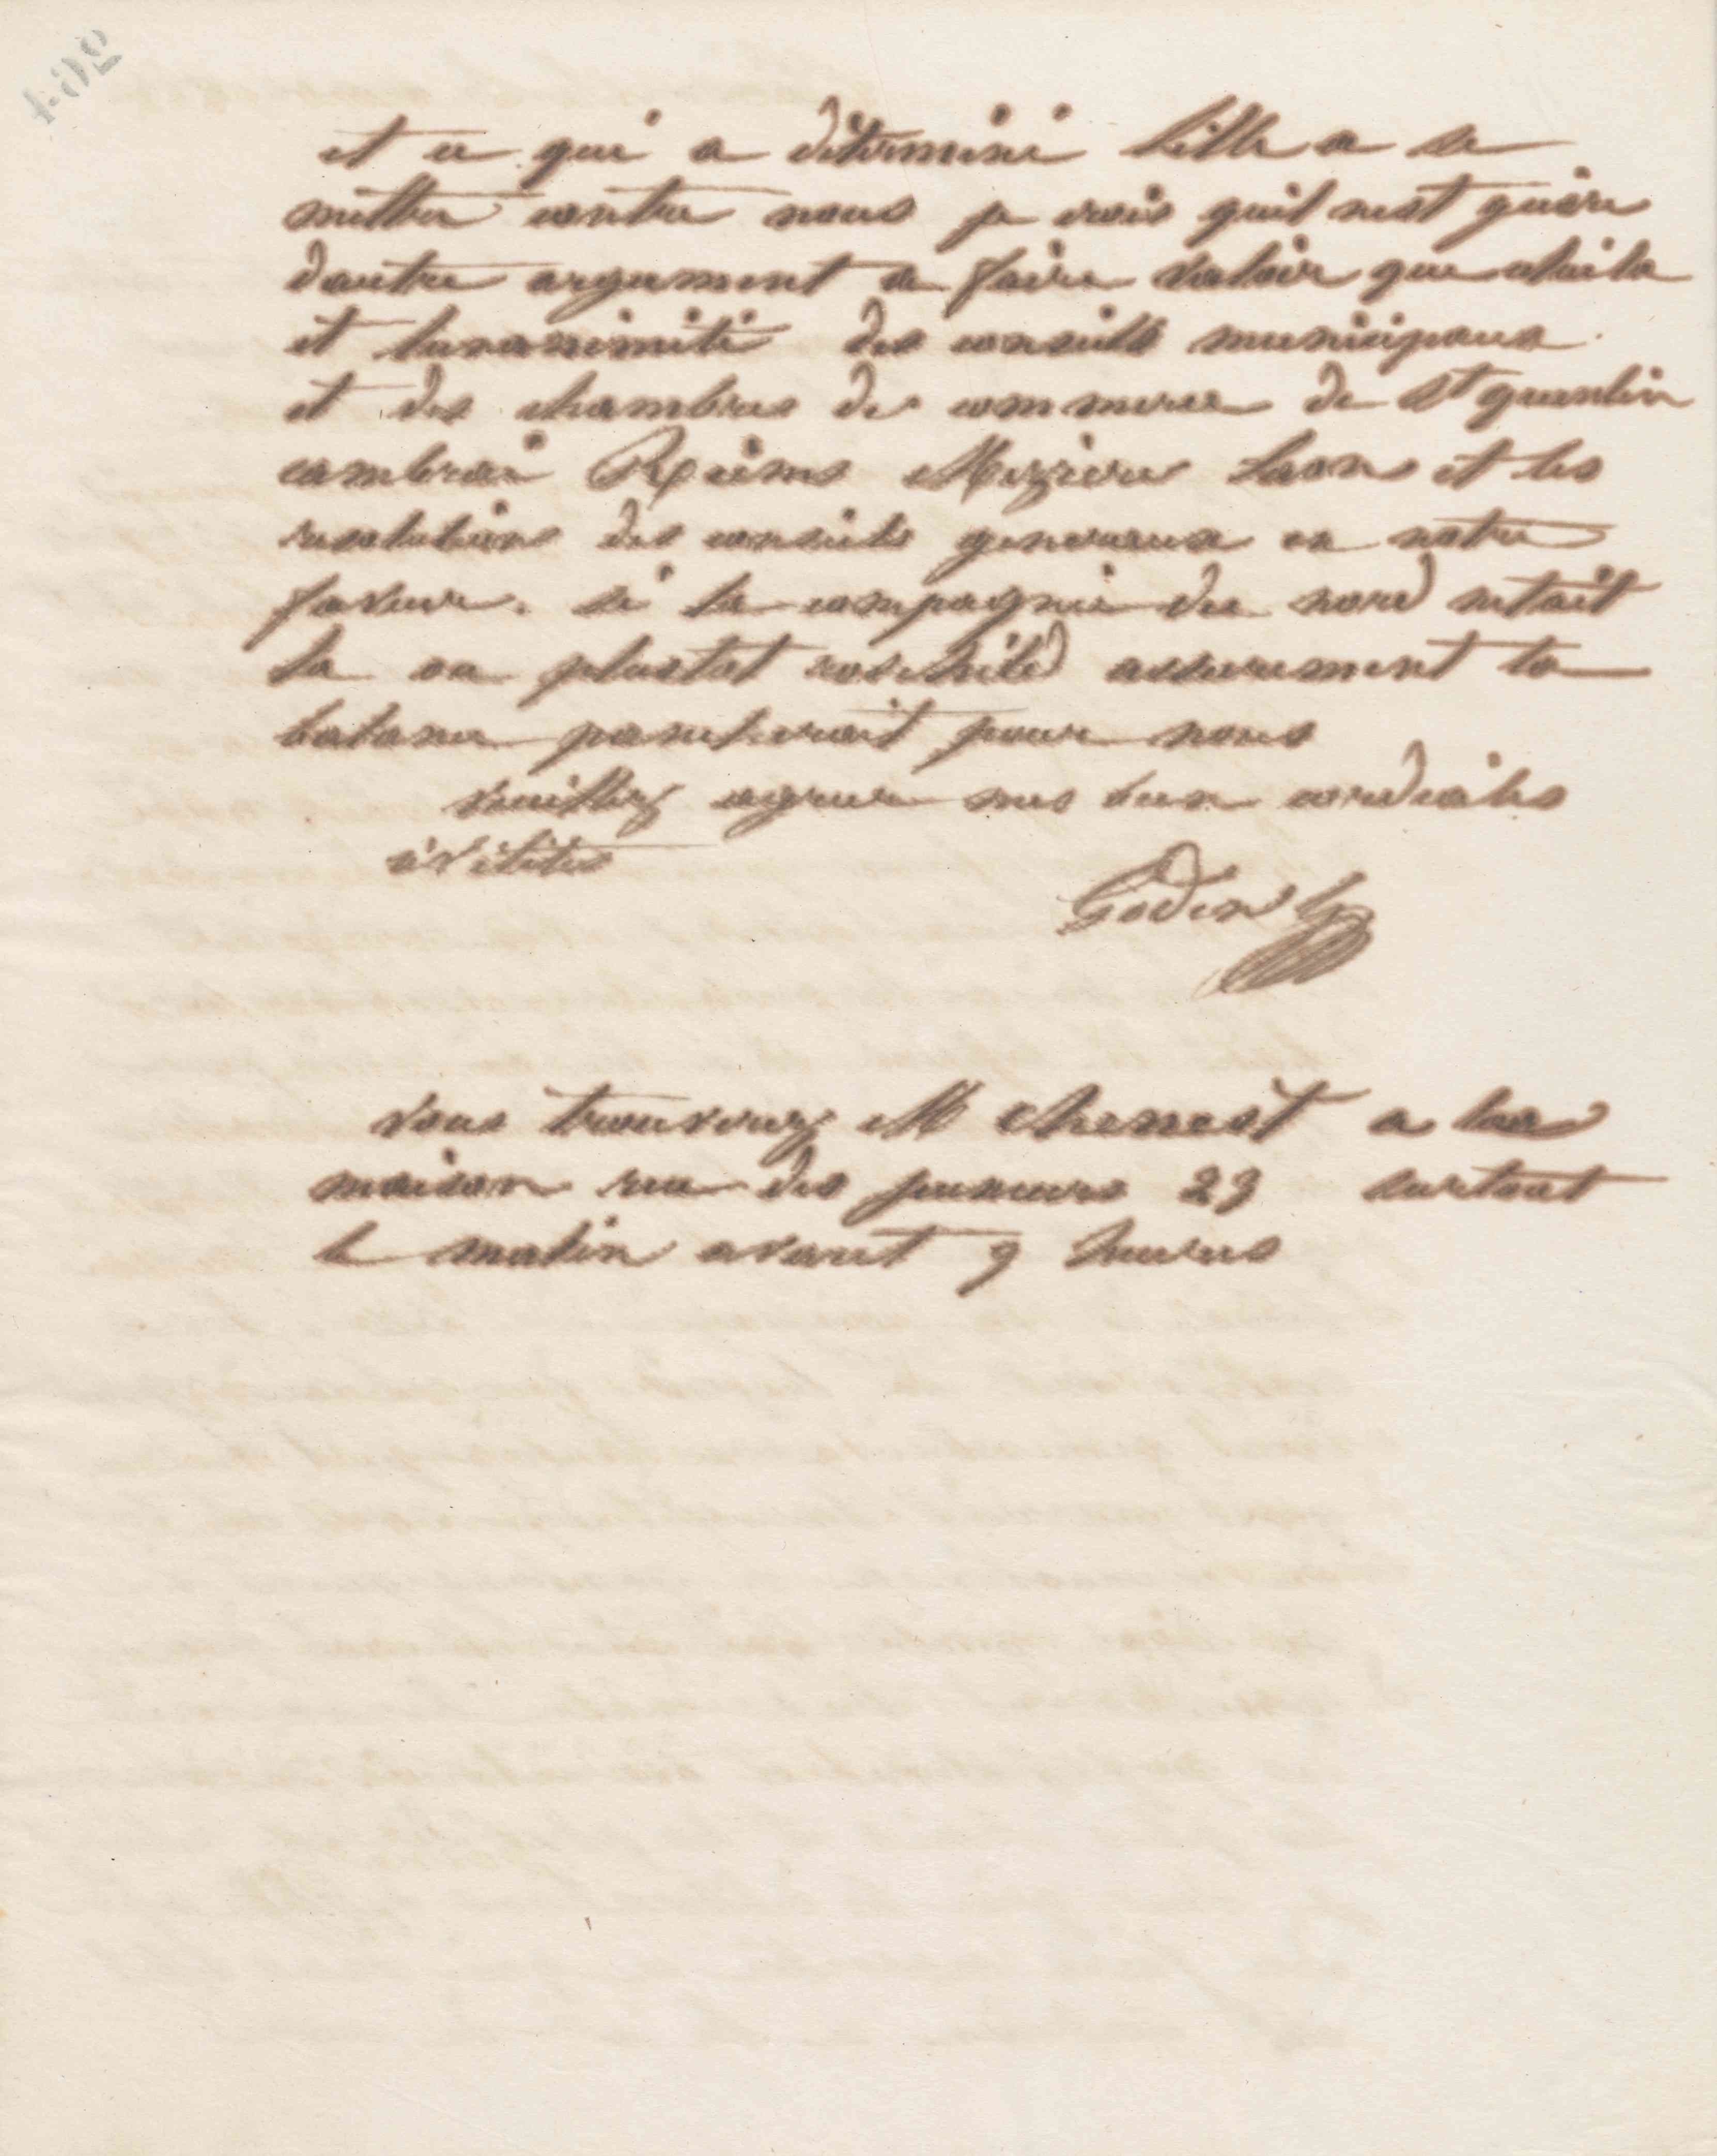 et ce qui a déterminé Lille a se
mettre contre nous je crois quil nest guère
dautre argument a faire valoir que celui la
et lunanimité des conseils municipaux
et des chambres de commerce de St quentin
cambrai Reims Mezieres Laon et les
resolutions des conseils generaux en notre
faveur. si la compagnie du nord netait
la ou plustot rotchild assurement la
balance pancherait pour nous
veuillez agreer mes bien cordiales
civilités
Godin
vous trouverez M chenest a la
maison rue des jeuneurs 23 surtout
le matin avant 9 heures